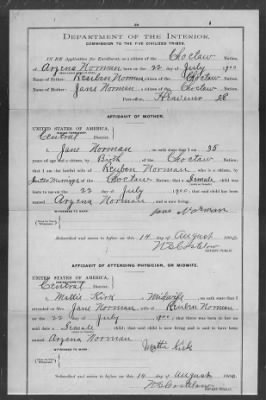 DEPARTMENT OF THE INTERIOR.
COMMISSION TO THE FIVE CIVILIZED TRIBES.
IN RE Application for Enrollment, as a citizen of the Choctaw Nation,
of Argena Norman, born on the 22 day of July, 1900
Name of Father: Reuben Norman, a citizen of the Choctaw Nation.
Name of Mother: Jane Norman, a citizen of the Choctaw Nation.
Post-office,
AFFIDAVIT OF MOTHER.
UNITED STATES OF AMERICA,
Central District.
I, Jane Norman, on oath state that I am 35
years of age and a citizen, by Birth, of the Choctaw Nation;
that I am the lawful wife of Reuben Norman, who is a citizen, by
of the Choctaw Nation; that a Female child was
born to me on the 22 day of July, 1900; that said child has been named
Argena Norman, and is now living.
Jane Norman
WITNESSES TO MARK:
Subscribed and sworn to before me this 14 day of August, 190
NOTARY PUBLIC.
AFFIDAVIT OF ATTENDING PHYSICIAN, OR MIDWIFE.
UNITED STATES OF AMERICA,
Central District.
I, Mattie Kirk, a Midwife, on oath state that I
attended on Mrs. Jane Norman, wife of Reuben Norman
on the 22 day of July, 1900; that there was born to her on
said date a Female child; that said child is now living and is said to have been
named Argena Norman
Mattie Kirk
WITNESSES TO MARK:
Subscribed and sworn to before me this 14 day of August, 190
NOTARY PUBLIC.